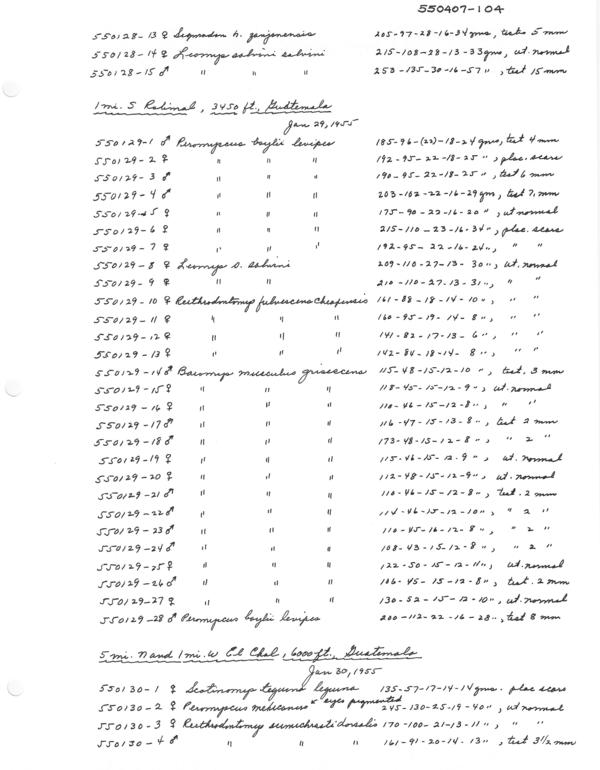 550407-104
550128-13 ♀ Sigmodon h. zanjonensis 205-97-28-16-34 gms, testis 5 mm
550128-14 ♀ Liomys salvini salvini 215-108-28-13-33 gms, ut. normal
550128-15 ♂ " " " 253-135-30-16-57 ", test 15 mm
1 mi. S Rabinal, 3450 ft., Guatemala
Jan 29, 1955
550129-1 ♂ Peromyscus boylii levipes 185-96-(22)-18-24 gms, test 4 mm
550129-2 ♀ " " " 192-95-22-18-25 ", plac. scars
550129-3 ♂ " " " 190-95-22-18-25 ", test 6 mm
550129-4 ♂ " " " 203-102-22-16-29 gm, test 7. mm
550129-5 ♀ " " " 175-90-22-16-20 ", ut normal
550129-6 ♀ " " " 215-110-23-16-34 ", plac. scars
550129-7 ♀ " " " 192-95-22-16-24 ", " "
550129-8 ♀ Liomys s. salvini 209-110-27-13-30 ", ut. normal
550129-9 ♀ " " 210-110-27-13-31 ", " "
550129-10 ♀ Reithrodontomys fulvescens chiapensis 161-88-18-14-10 ", " "
550129-11 ♀ " " " 160-95-19-14-8 ", " "
550129-12 ♀ " " " 141-82-17-13-6 ", " "
550129-13 ♀ " " " 142-84-18-14-8 ", " "
550129-14 ♂ Baiomys musculus grisescens 115-48-15-12-10 ", test. 3 mm
550129-15 ♀ " " " 118-45-15-12-9 ", ut. normal
550129-16 ♀ " " " 110-46-15-12-8 ", " "
550129-17 ♂ " " " 116-47-15-13-8 ", test 2 mm
550129-18 ♂ " " " 173-48-15-12-8 ", " 2 "
550129-19 ♀ " " " 115-46-15-12-9 ", ut. normal
550129-20 ♀ " " " 112-48-15-12-9 ", ut. normal
550129-21 ♂ " " " 110-46-15-12-8 ", test. 2 mm
550129-22 ♂ " " " 114-46-15-12-10 ", " 2 "
550129-23 ♂ " " " 110-45-16-12-8 ", " 2 "
550129-24 ♂ " " " 108-43-15-12-8 ", " 2 "
550129-25 ♀ " " " 122-50-15-12-11 ", ut. normal
550129-26 ♂ " " " 106-45-15-12-8 ", test. 2 mm
550129-27 ♀ " " " 130-52-15-12-10 ", ut. normal
550129-28 ♂ Peromyscus boylii levipes 200-112-22-16-28 ", test 8 mm
5 mi. N and 1 mi. W El Chol, 6000 ft., Guatemala
Jan 30, 1955
550130-1 ♀ Scotinomys teguina teguina 135-57-17-14-14 gms. plac scars
550130-2 ♀ Peromyscus mexicanus eyes pigmented 245-130-25-19-40 ", ut normal
550130-3 ♀ Reithrodontomys sumichrasti dorsalis 170-100-21-13-11 ", " "
550130-4 ♂ " " " 161-91-20-14-13 ", test 3½ mm